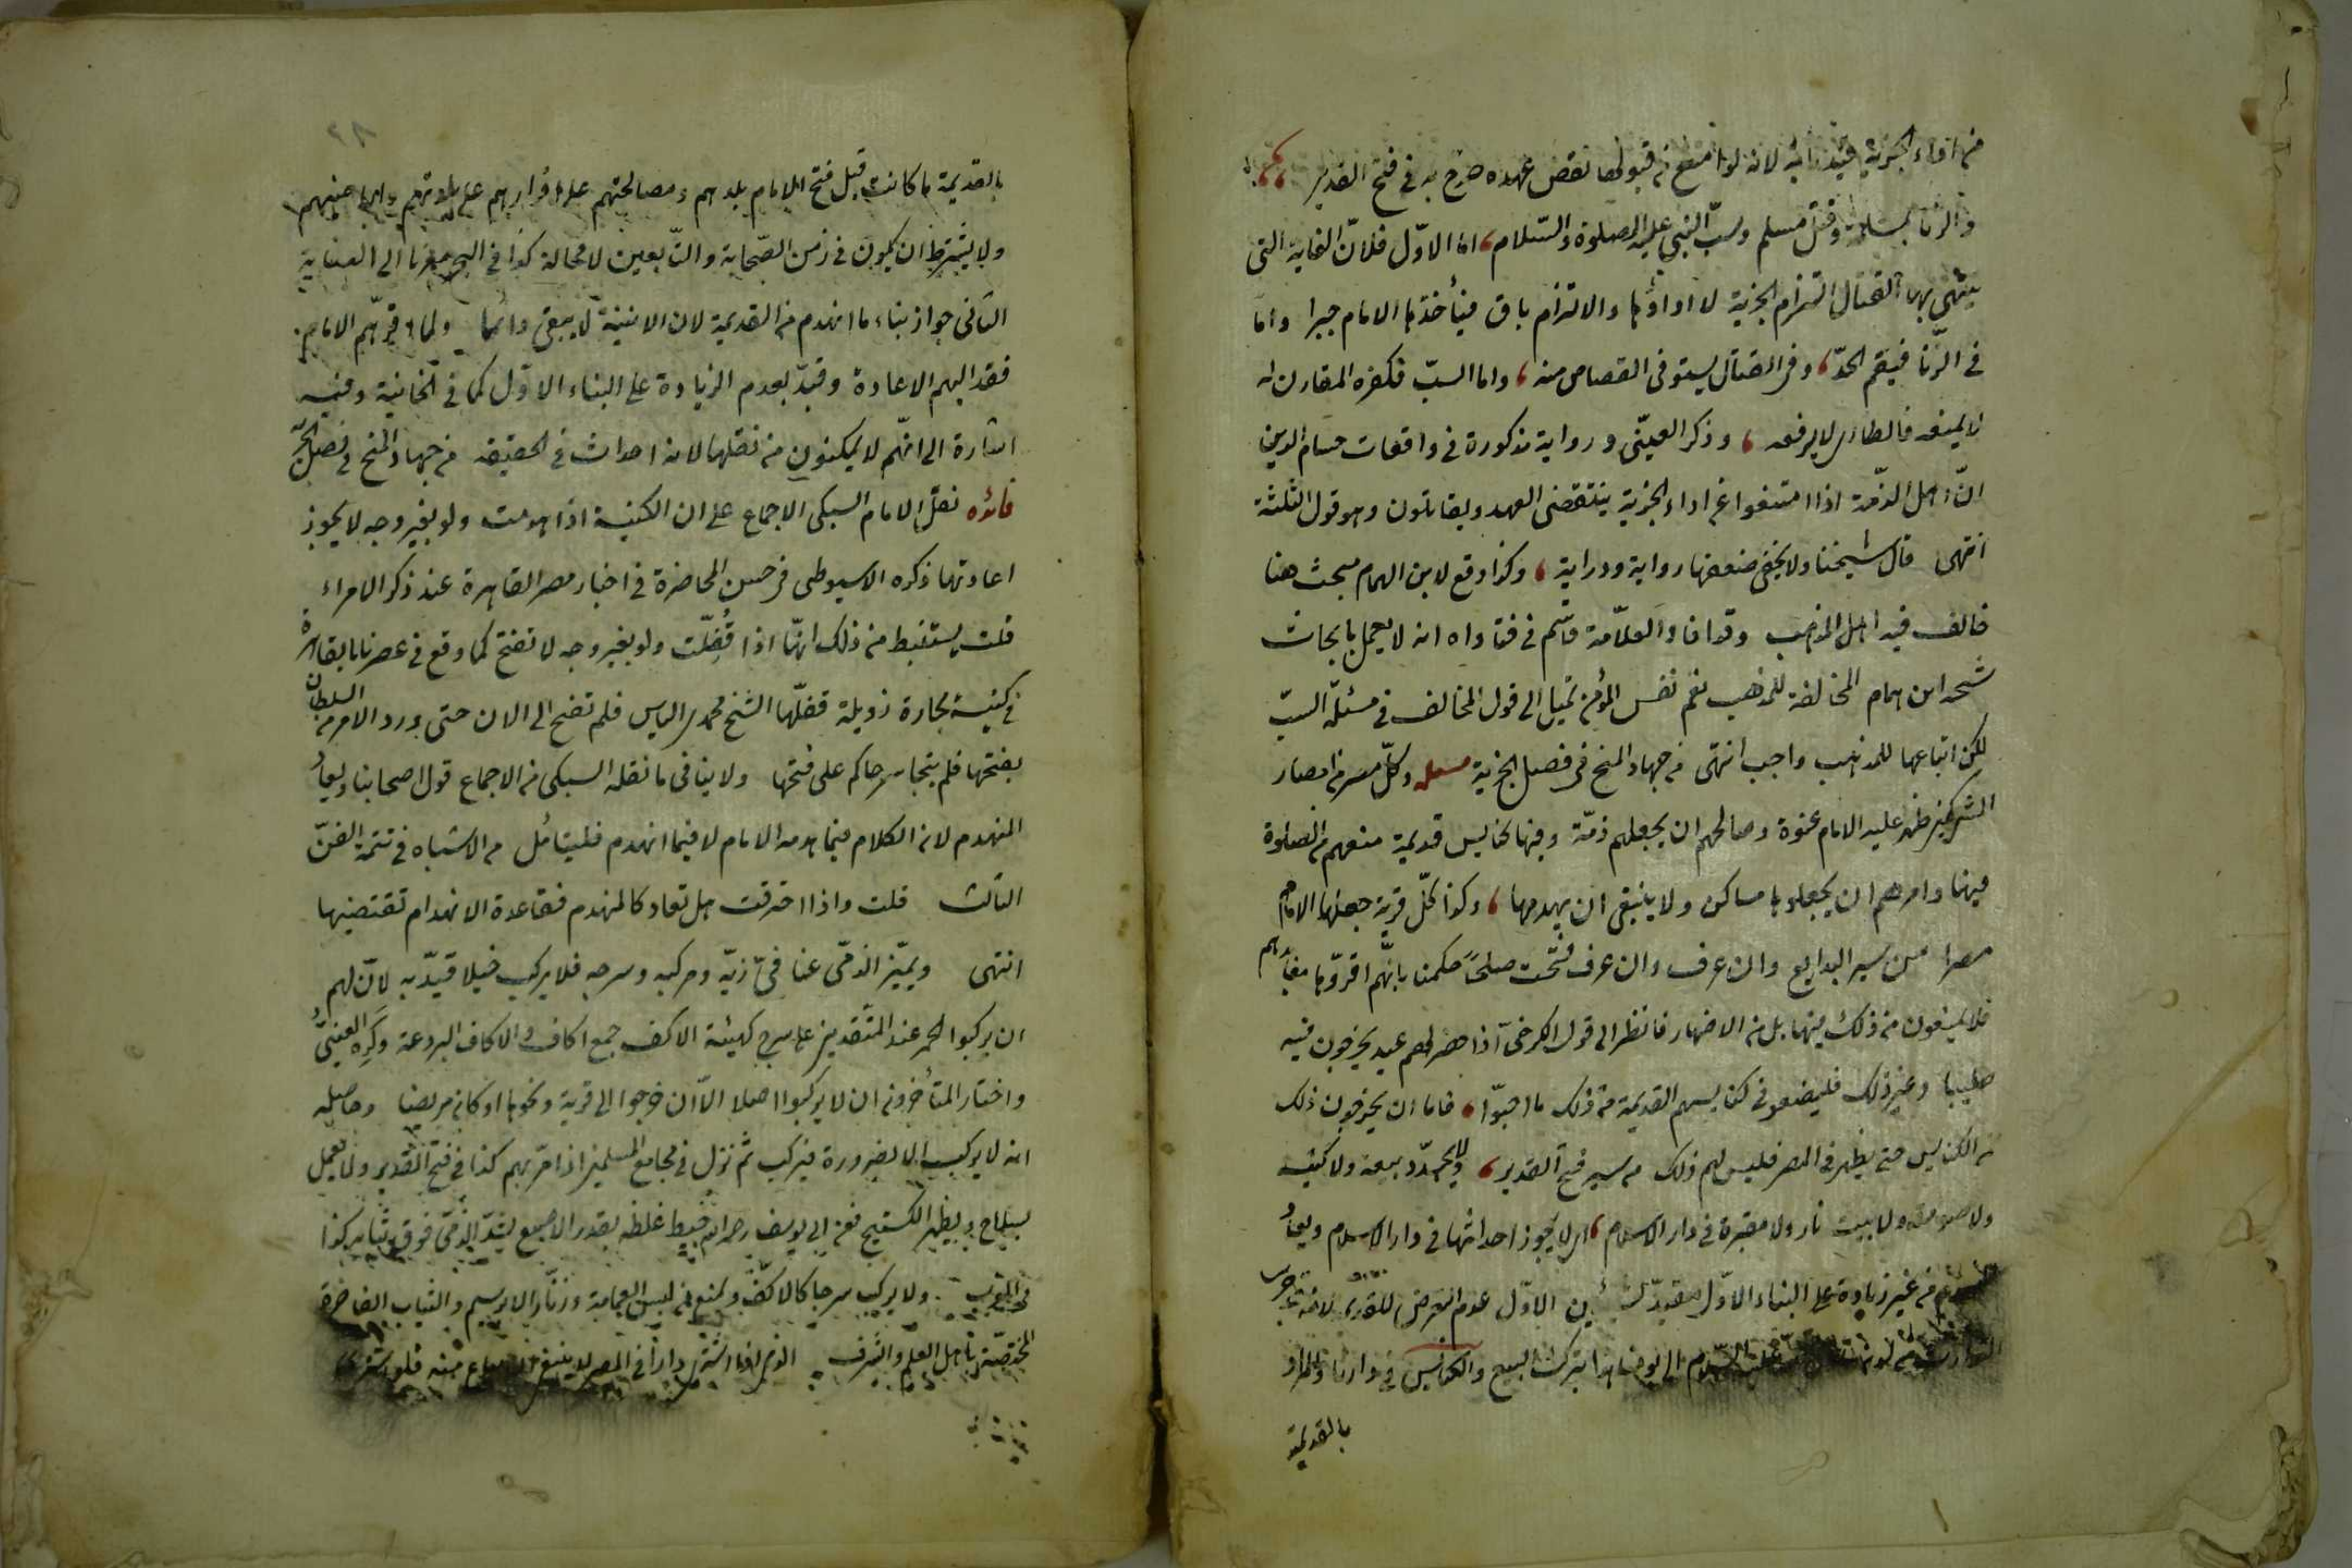 من اداء الجزية قيد بابه لانه لو امتنع من قبولها نقض عهده صرح به في فتح القدير
والزنا بمسلمة وقتل مسلم وسبّ النبي عليه الصلوة والسّلام اما الاوّل فلانّ الغاية التى
ينتهى بها القتال التزام الجزية لا اداؤها والالتزام باق فيأخذها الامام جبرا واما
في الزّنا فيقيم الحدّ وفى القتال يستوفى القصاص منه واما السبّ فكفره المقارن له
لا يمنعه فالطارى لا يرفعه وذكر العينّى و رواية مذكورة في واقعات حسام الدين
انّ اهل الذمّة اذا امتنعوا عن اداء الجزية ينتقض العهد ويقاتلون وهو قول الثلثة
انتهى قال شيخنا ولا يخفى ضعفها رواية ودراية وكذا وقع لابن الهمام بحث هنا
خالف فيه اهل المذهب وقد افاد العلّامة قاسم في فتاواه انه لا يعمل بابحاث
شيخه ابن همام المخالفة للمذهب نعم نفس المؤمن تميل الى قول المخالف في مسئلة السبّ
لكن اتباعنا للمذهب واجب انتهى من جهاد المنح في فصل الجزية مسئله وكلّ مصر من امصار
المشركين ظهر عليه الامام عنوة وصالحهم ان يجعلهم ذمّة وفيها كنايس قديمة منعهم من الصلوة
فيها وامرهم ان يجعلوها مساكن ولا ينبغى ان يهدمها وكذا كلّ قرية جعلها الامام
مصرا من سير البدايع وان عرف وان عرف فتحت صلحًا حكمنا بانّهم اقرّوها معابدهم
فلا يمنعون من ذلك فيها بل من الاظهار فانظر الى قول الكرخى اذا حضر لهم عيد يخرجون فيه
صليبا وغير ذلك فليصنعو في كنايسهم القديمة من ذلك ما احبّوا فاما ان يخرجون ذلك
من الكنايس حتى يظهر في المصر فليس لهم ذلك من سير فتح القدير ولا يحدّد بيعة ولا كنيسة
ولا صومعة ولا بيت نار ولا مقبرة في دار الاسلام اى لا يجوز احداثها في دار الاسلام ويعاد
المنهدم من غير زيادة على البناء الاوّل الاوّل عدم التعرض للقديم لانه جرى
التوارث من لدن عليه السّلام الى يومنا هذا بترك البيع والكنايس في دارنا والمراد
بالقديمة
بالقديمة ما كانت قبل فتح الامام بلدهم ومصالحتهم على اقرارهم على بلدتهم واراضيهم
ولا يشترط ان يكون في زمن الصّحابة والتّابعين لا محالة كذا في البحر معزيا الى العناية
الثانى جواز بناء ما انهدم من القديمة لان الابنية لا يبقى دائما ولما اقرّهم الامام
فقد اليهم الاعادة وقيد بعدم الزيادة على البناء الاوّل كما في الخانية وفيه
اشارة الى انّهم لا يمكنون من نقلها لانه احداث في الحقيقة من جهاد المنح في فصل الجزية
فائده نقل الامام السبكى الاجماع على ان الكنيسة اذا هدمت ولو بغير وجه لا يجوز
اعادتها ذكره الاسيوطى في حسن المحاضرة في اخبار مصر القاهرة عند ذكر الامراء
قلت يستنبط من ذلك انّها اذا قُفِلّت ولو بغير وجه لا تفتح كما وقع في عصرنا بالقاهرة
في كنيسة بحارة زويلة قفلها الشيخ محمد بن الياس فلم تفتح الى الان حتى ورد الامر من السلطان
بفتحها فلم يتجاسر حاكم على فتحها ولا ينافى ما نقله السبكى من الاجماع قول اصحابنا ويعاد
المنهدم لان الكلام فيما هدمه الامام لا فيما انهدم فليتامّل من الاشباه في تتمة الفنّ
الثالث قلت واذا احترقت هل تعاد كالمنهدم فقاعدة الانهدام تقتضيها
انتهى ويميّز الذمّى عنا فى زيّه ومركبه وسرجه فلا يركب خيلا قيدّ به لانّ لهم
ان يركبوا الحمر عند المتقدمين على سرج كهيئة الاكف جمع اكاف والاكاف البردعة ذكره العينىّ
واختار المتأخرون ان لا يركبوا اصلا الّا ان خرجوا الى قرية ونحوها او كان مريضا وحاصله
انه لا يركب الا لضرورة فيركب ثم نزل في مجامع المسلمين اذا مرّ بهم كذا في فتح القدير ولا يعمل
بسلاح ويظهر الكستيج فعن ابى يوسف رحمه الله خيط غلظه بقدر الاصبع يشدّ الذمّى فوق ثيابه كذا
في المغرب ولا يركب سرجا كالاكفّ ويمنع من لبس العمامة وزنّار الابريسم والثياب الفاخرة
المختصّة باهل العلم والشرف الذمى اذا اشترى دارا في المصر لا ينبغى ان يباع منه فلو اشترى